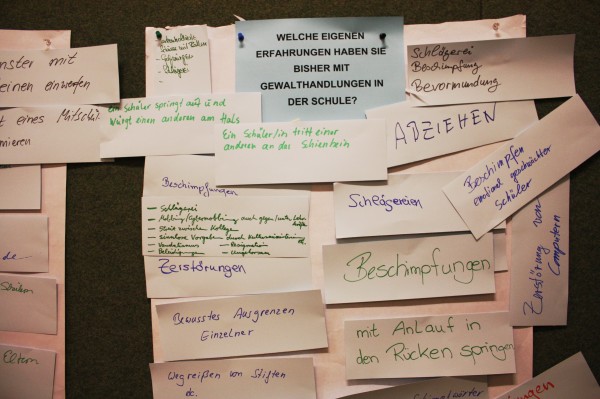 WELCHE EIGENEN
ERFAHRUNGEN HABEN SIE
BISHER MIT
GEWALTHANDLUNGEN
IN DER SCHULE?
nster mit
einen einwerfen
t eines Mitschü
mieren
Ein Schüler springt auf und
Würgt einen anderen am Hals
Ein Schüler/in tritt einer
anderen an das Shienbein
Schlägerei
Beschimpfung
Bevormundung
ABZIEHEN
Beschimpfen
emotional geschwächter
Schüler
Zerstörung von
Computern
Beschimpfungen
– Schlägerei
– Mobbing/Cybermobbing auch gegen/unter
– Streit zwischen Kollege
– sinnlose Vorgaben durch
– Vandalismus
– Resignation
– Beleidigungen
– Ungehorsam
Schlägereien
Zerstörungen
Beschimpfungen
Bewusstes Ausgrenzen
Einzelner
mit Anlauf in
den Rücken springen
Wegreißen von Stiften
etc.
de
Schülern
Eltern